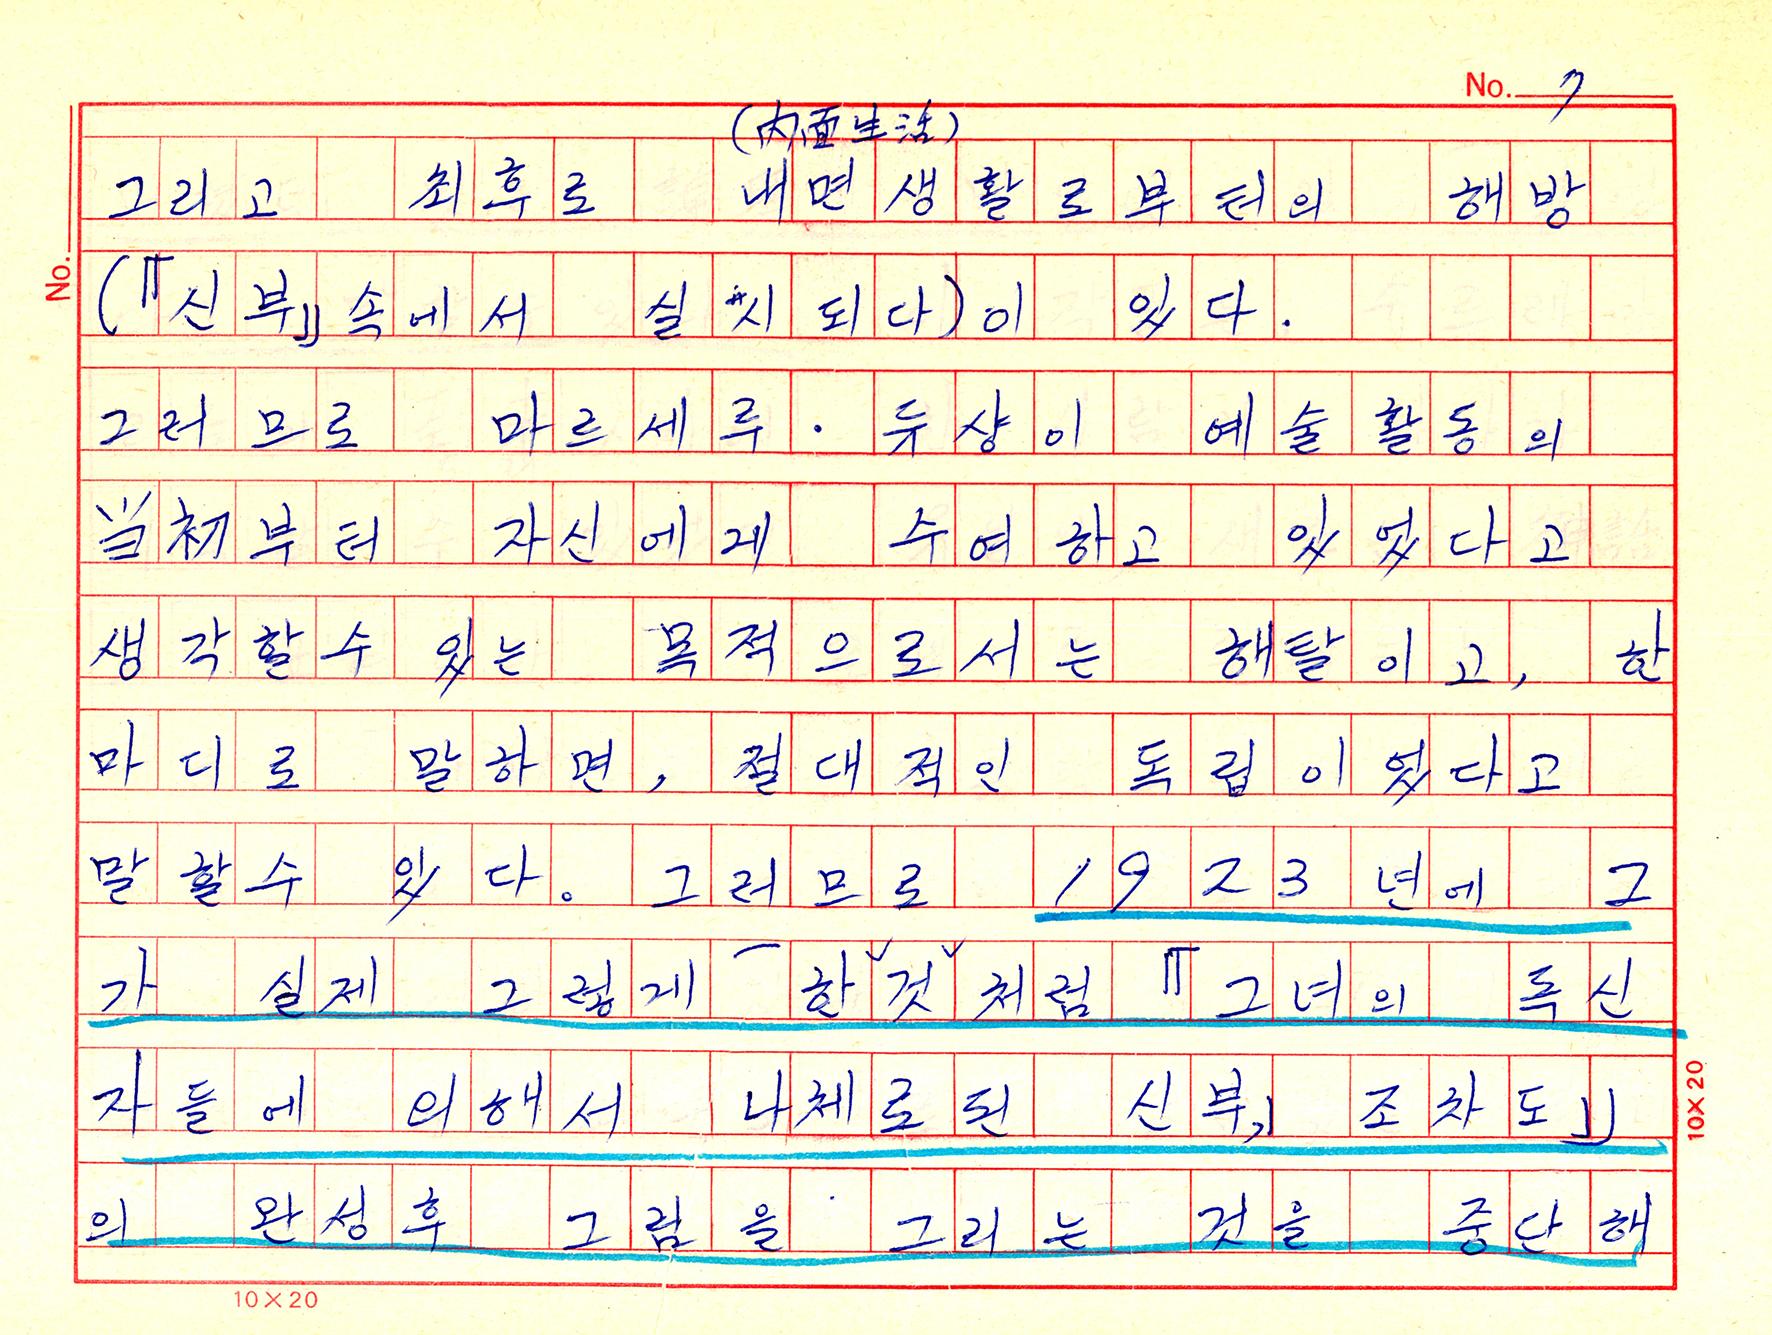 No. 7
(内面生活)
그리고 최후로 내면생활로부터의 해방
No.
(『신부』속에서 실시되다)이 있다.
그러므로 마르세루·듀샹이 예술활동의
当初부터 자신에게 수여하고 있었다고
생각할수 있는 목적으로서는 해탈이고, 한
마디로 말하면, 절대적인 독립이었다고
말할수 있다. 그러므로 1923년에 그
가 실제 그렇게 한것처럼 『그녀의 독신
자들에 의해서 나체로된 신부, 조차도』
10×20
의 완성후 그림을 그리는 것을 중단해
10×20